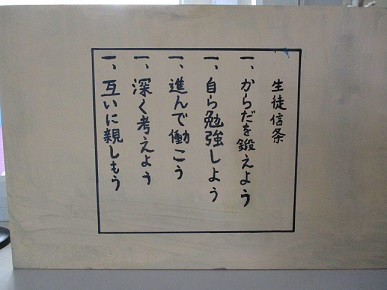 生徒信条
一、からだを鍛えよう
一、自ら勉強しよう
一、進んで働こう
一、深く考えよう
一、互いに親しもう